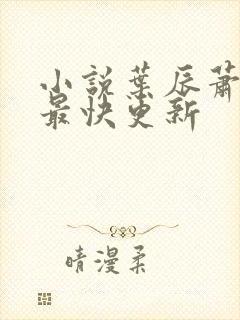 小説葉辰蕭
最快更新
晴漫柔